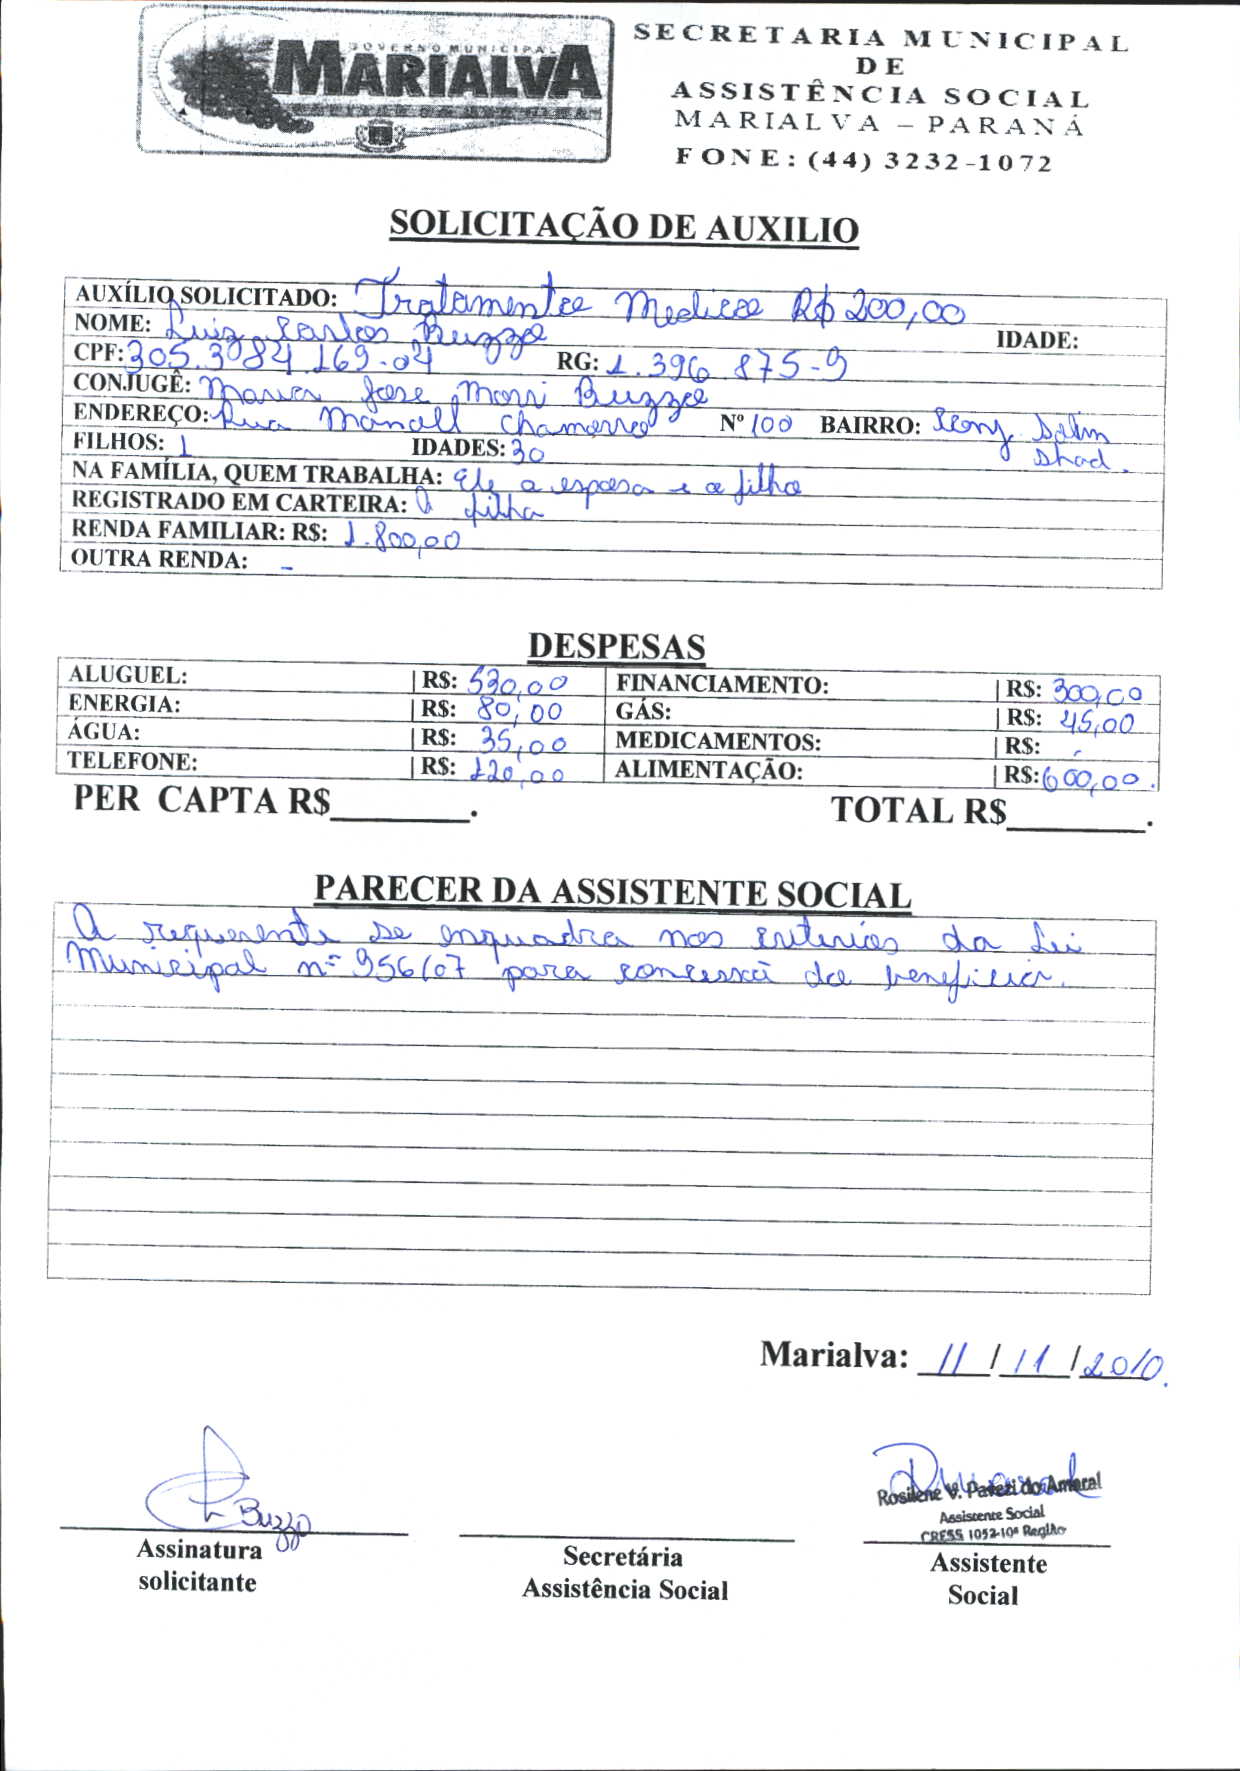 GOVERNO MUNICIPAL
MARIALVA
SECRETARIA MUNICIPAL
DE
ASSISTÊNCIA SOCIAL
MARIALVA – PARANÁ
FONE: (44) 3232-1072
SOLICITAÇÃO DE AUXILIO
AUXÍLIO SOLICITADO: Tratamento Medico R$ 200,00
NOME: Luiz Carlos Buzzo IDADE:
CPF: 305.3084.169-04 RG: 1.396 875-9
CONJUGÊ: Maria Jose Morri Buzzo
ENDEREÇO: Rua Manoell Chamorro Nº 100 BAIRRO: Conj Salim
FILHOS: 1 IDADES: 30
NA FAMÍLIA, QUEM TRABALHA: Ele a esposa e a filha
REGISTRADO EM CARTEIRA: A filha
RENDA FAMILIAR: R$: 1.800,00
OUTRA RENDA: -
DESPESAS
ALUGUEL: R$: 530,00 FINANCIAMENTO: R$: 300,00
ENERGIA: R$: 80,00 GÁS: R$: 45,00
ÁGUA: R$: 35,00 MEDICAMENTOS: R$: -
TELEFONE: R$: 120,00 ALIMENTAÇÃO: R$: 600,00.
PER CAPTA R$________. TOTAL R$________.
PARECER DA ASSISTENTE SOCIAL
A requerente se enquadra nos criterios da Lei
Municipal nº 956/07 para concessã do beneficio.
Marialva: 11/11/2010.
Buzzo
Rosilene V. Pavezi do Amaral
Assistente Social
CRESS 1052-10ª Região
Assinatura
solicitante
Secretária
Assistência Social
Assistente
Social